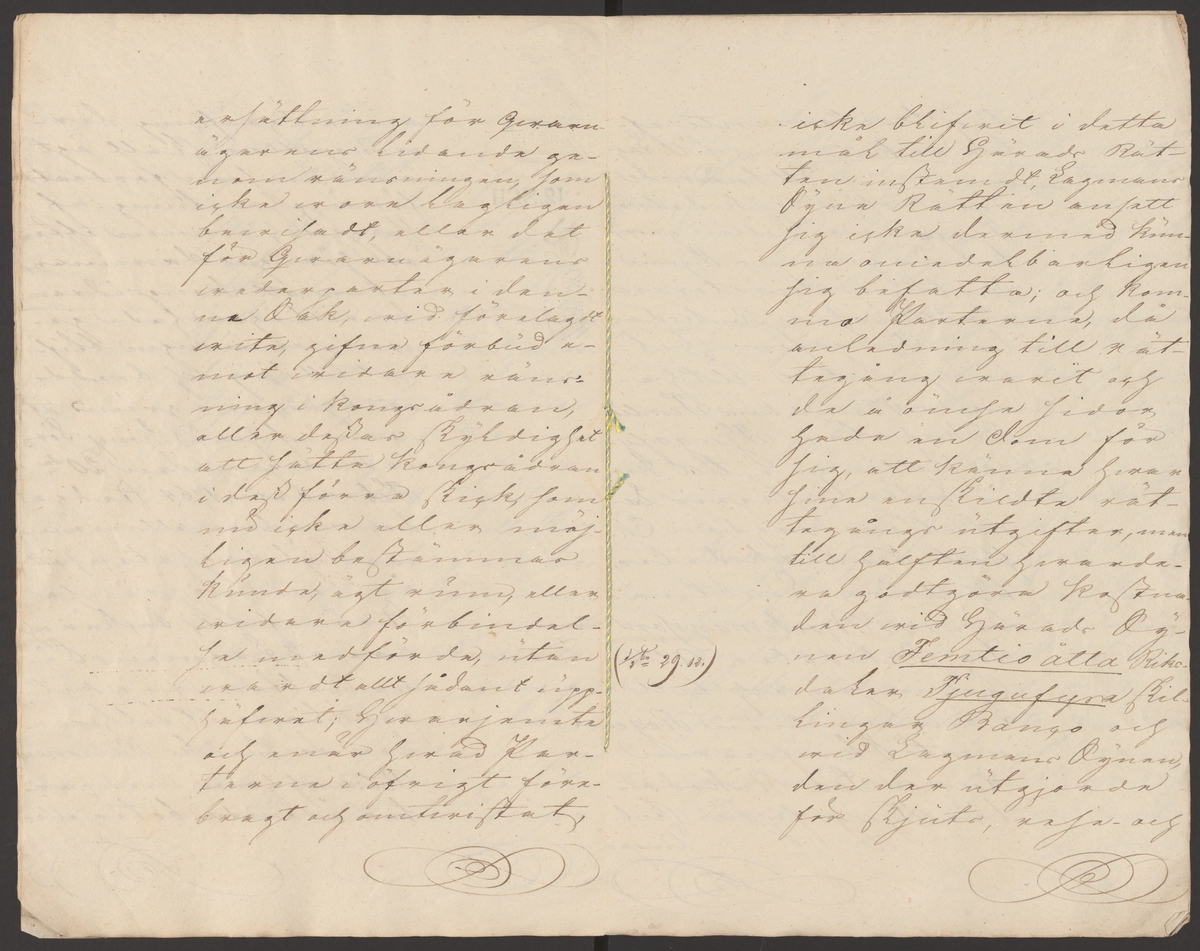 ersättning för Qvarn-
ägarens lidande ge-
nom ränsningen, som
icke vore lagligen
bevisadt, eller det
för Qvarnägarens
vederparter i den-
na Sak, vid förelagdt
vite, gifne förbud e-
mot vidare räns-
ning i Kongsådran,
eller dessas skyldighet
att sätta Kongsådran
i dess förra skick, som
nu icke eller möj-
ligen bestämmas
kunde, ägt rum, eller
vidare förbindel-
se medförde, utan
vardt allt sådant upp-
häfvet; Hvarjemte
och enär hvad Par-
terne i öfrigt före-
bragt och omtvistat,
(1/2 29. 12.)
icke blifvit i detta
mål till Härads Rät-
ten instemdt, Lagmans
Syne Rätten ansett
sig icke dermed kun-
na omedelbarligen
sig befatta; och kom-
mo Parterne, då
anledning till rät-
tegång varit och
de å ömse sidor
hade en Dom för
sig, att känna hvar
sine enskildte rät-
tegångs utgifter, men
till hälften hvarde-
ra godtgöra kostna-
den vid Härads Sy-
nen Femtio åtta Riks-
daler Tjugufyra skil-
lingar Banco och
vid Lagmans Synen,
den der utgjorde
för skjuts, rese- och